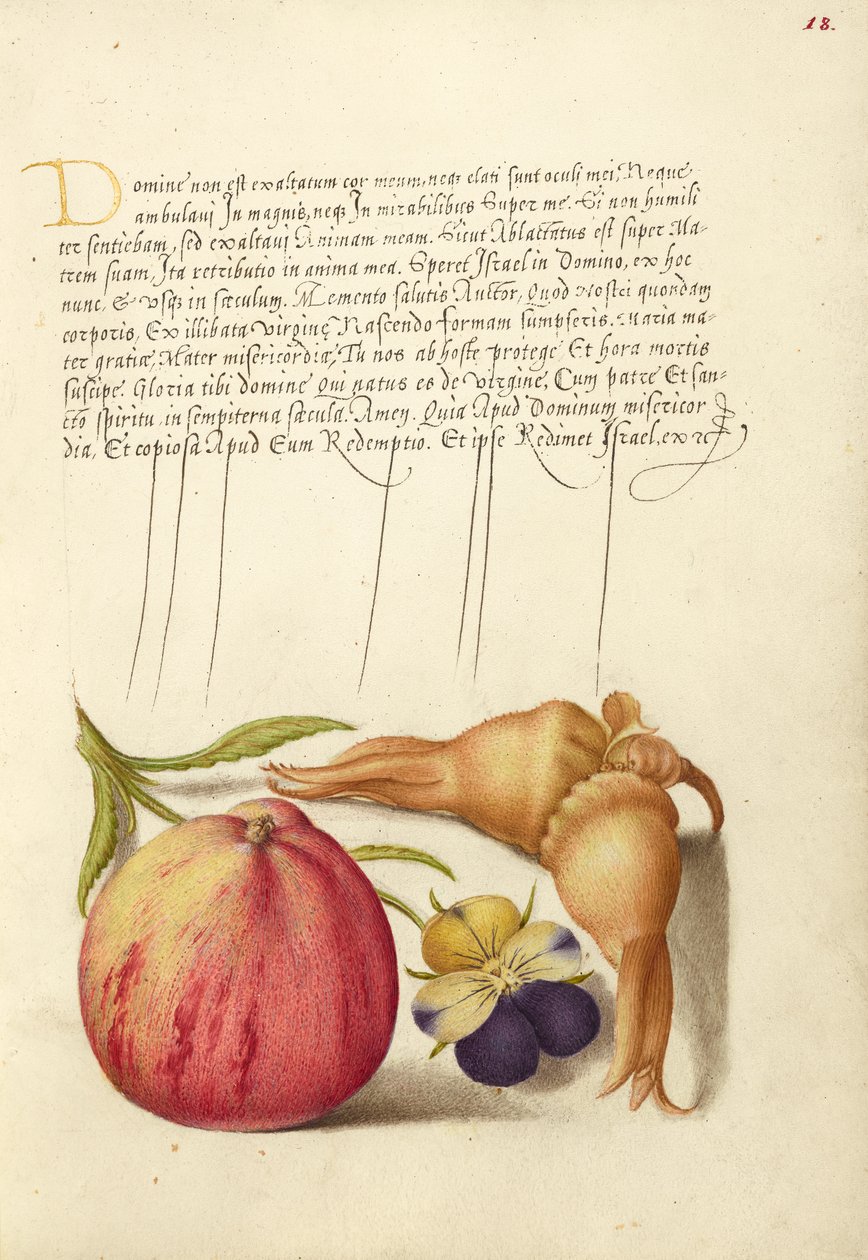 18.
Domine non est exaltatum cor meum, neqʒ elati sunt oculi mei, Neque
ambulaui In magnis, neqʒ In mirabilibus Super me. Si non humili
ter sentiebam, sed exaltaui Animam meam. Sicut Ablactatus est super Ma-
trem suam, Ita retributio in anima mea. Speret Israel in Domino, ex hoc
nunc, & vsqʒ in sæculum. Memento salutis Auctor, Quod nostri quondam
corporis, Ex illibata virginę Nascendo formam sumpseris. Maria ma-
ter gratiæ, Mater misericordiæ, Tu nos ab hoste protege Et hora mortis
suscipe. Gloria tibi domine Qui natus es de virgine, Cum patre Et san-
cto spiritu, in sempiterna sæcula. Amen. Quia Apud Dominum misericor
dia, Et copiosa Apud Eum Redemptio. Et ipse Redimet Israel, ex